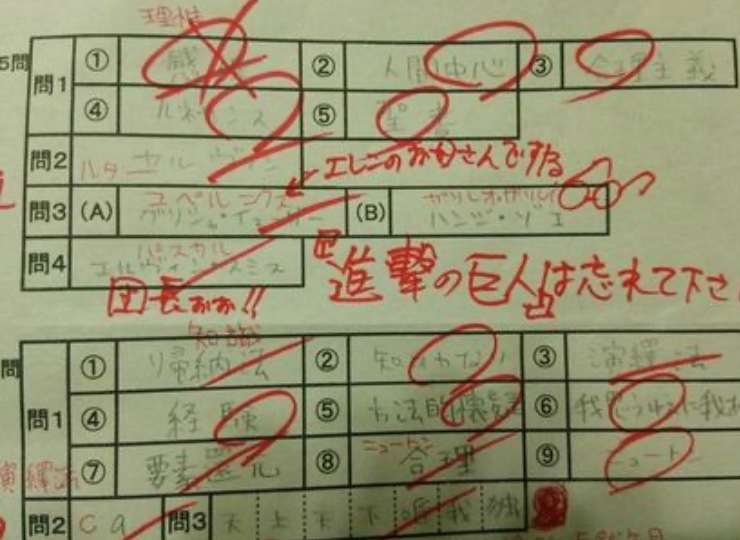 理性
5問 問1 ① ② 人間中心 ③ 合理主義
④ ルネサンス ⑤ 聖書
問2 ルター カルヴァン
←エレンのお母さんですょね
問3 (A) コペルニクス グリシャ・イェーガー (B) ガリレオ・ガリレイ ハンジ・ゾエ
問4 パスカル エルヴィン・スミス
団長ぉぉ!!
進撃の巨人は忘れて下さ
知識
問 問1 ① 帰納法 ② ③ 演繹法
④ 経験 ⑤ 方法的懐疑 ⑥ 我思うゆえに我
演繹法 ⑦ 要素還元 ⑧ ニュートン 合理 ⑨ ニュートン
問2 C a 問3 天 上 天 下 唯 我 独